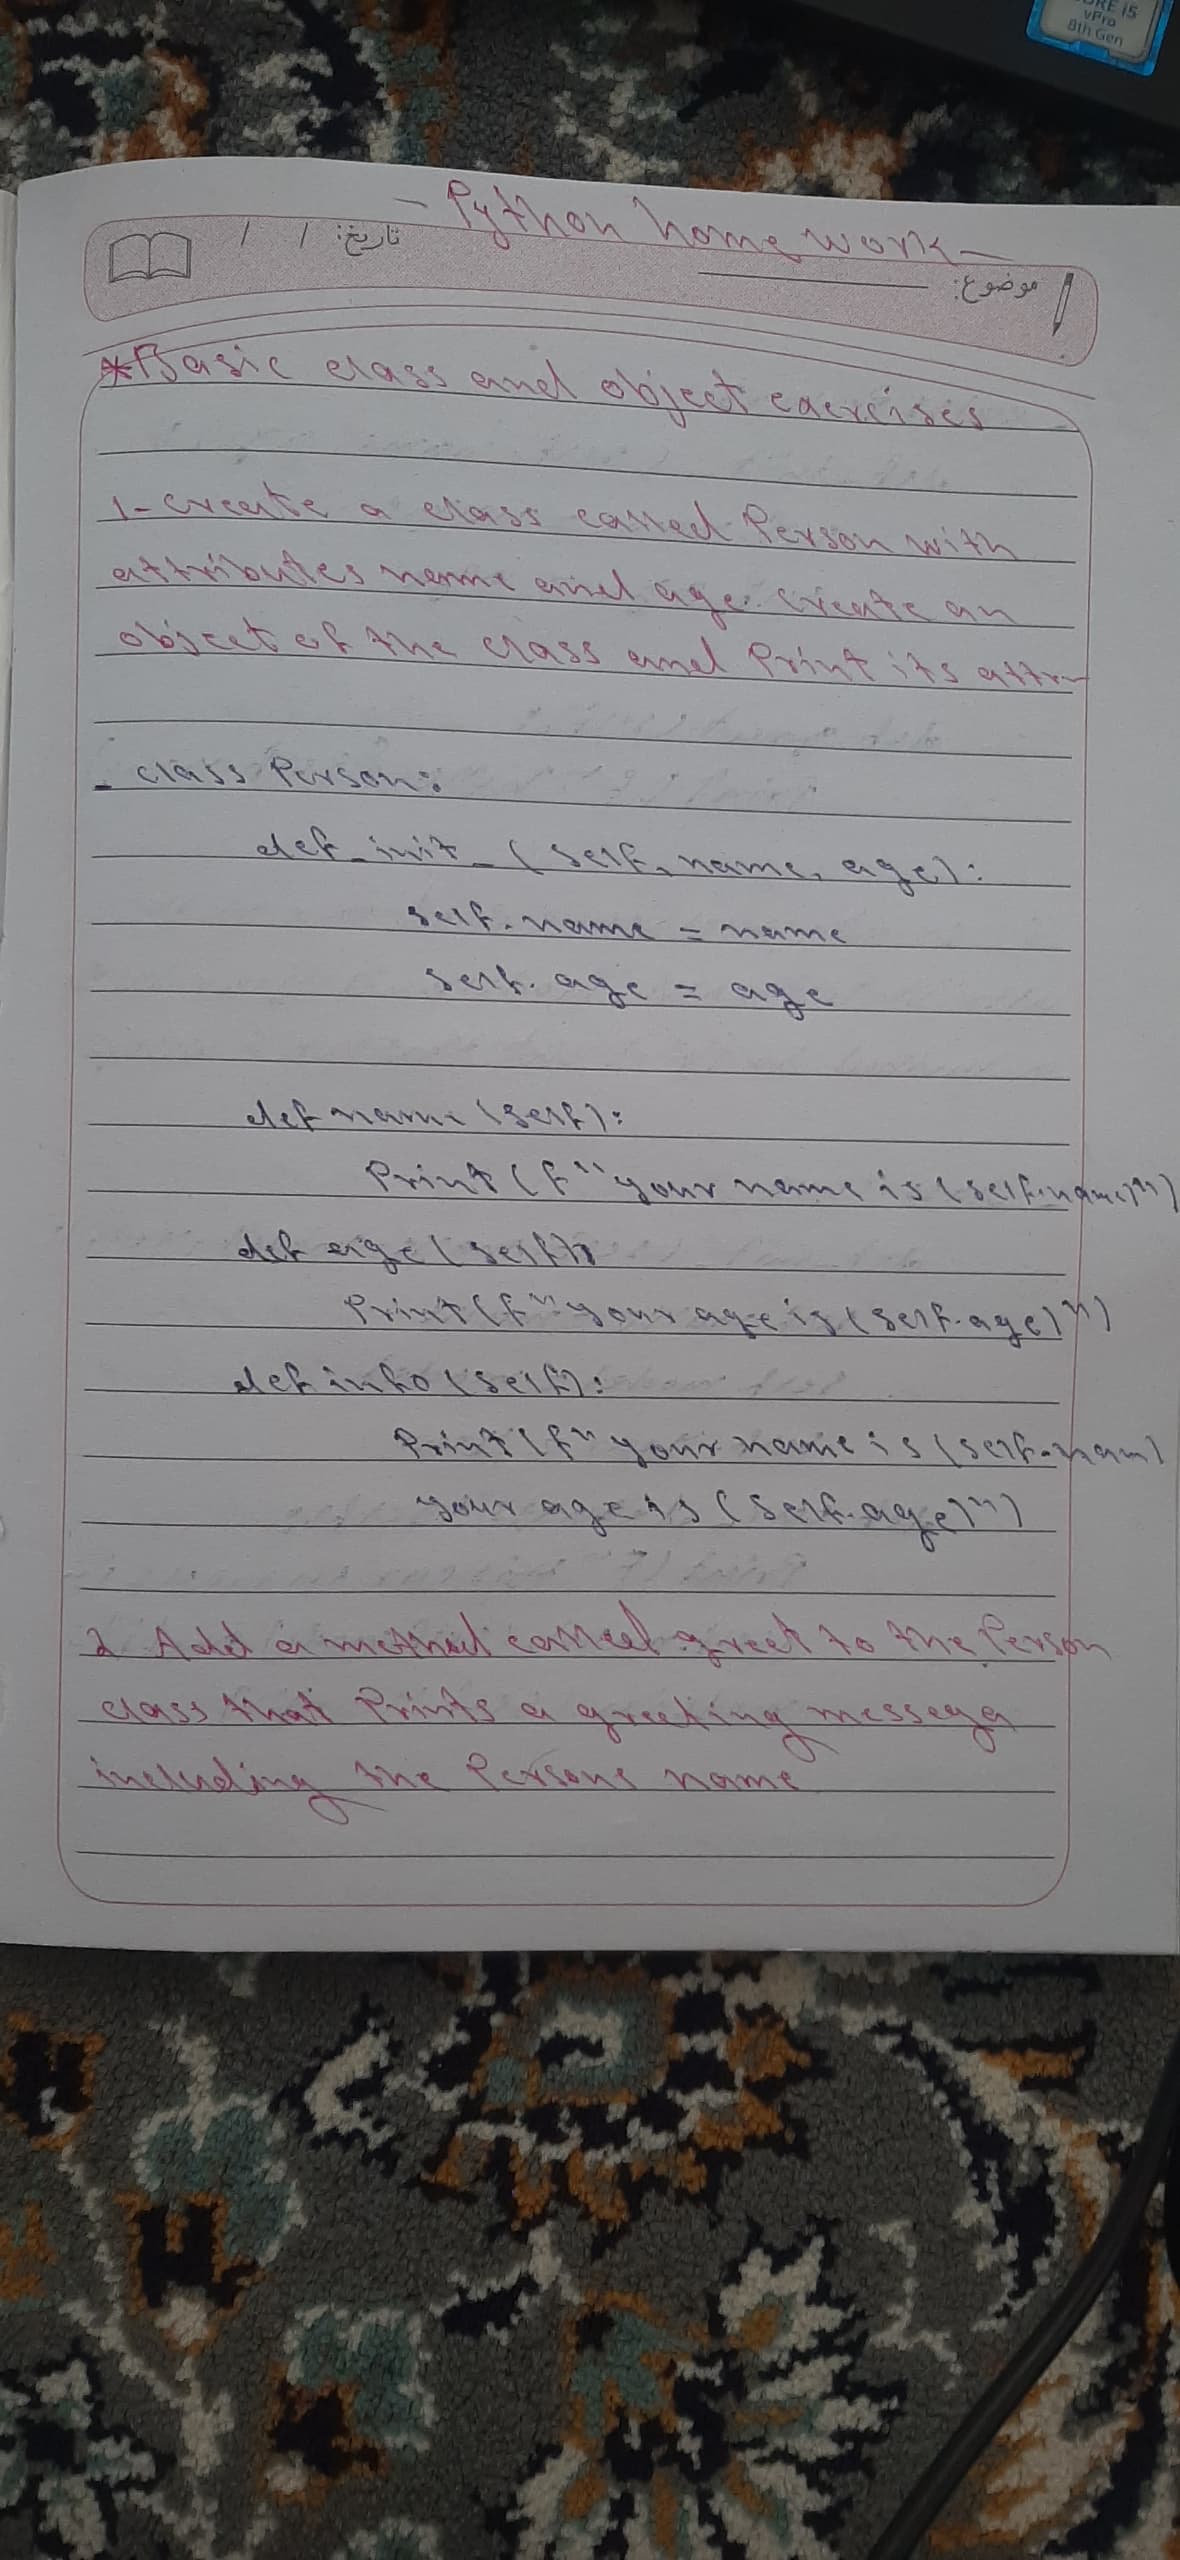 CORE i5
vPro
8th Gen
- Python home work -
تاریخ: / /
موضوع:
*Basic class and object exercises
1- create a class called Person with
attributes name and age. create an
object of the class and Print its attr-
- class Person:
def _init_ (self, name, age):
self.name = name
self.age = age
def name (self):
Print (f"your name is (self.name)")
def age (self):
Print (f"your age is (self.age)")
def info (self):
Print (f" your name is (self.nam)
your age is (self.age)")
2 Add a method called greet to the Person
class that Prints a greeting messega
including the Persons name